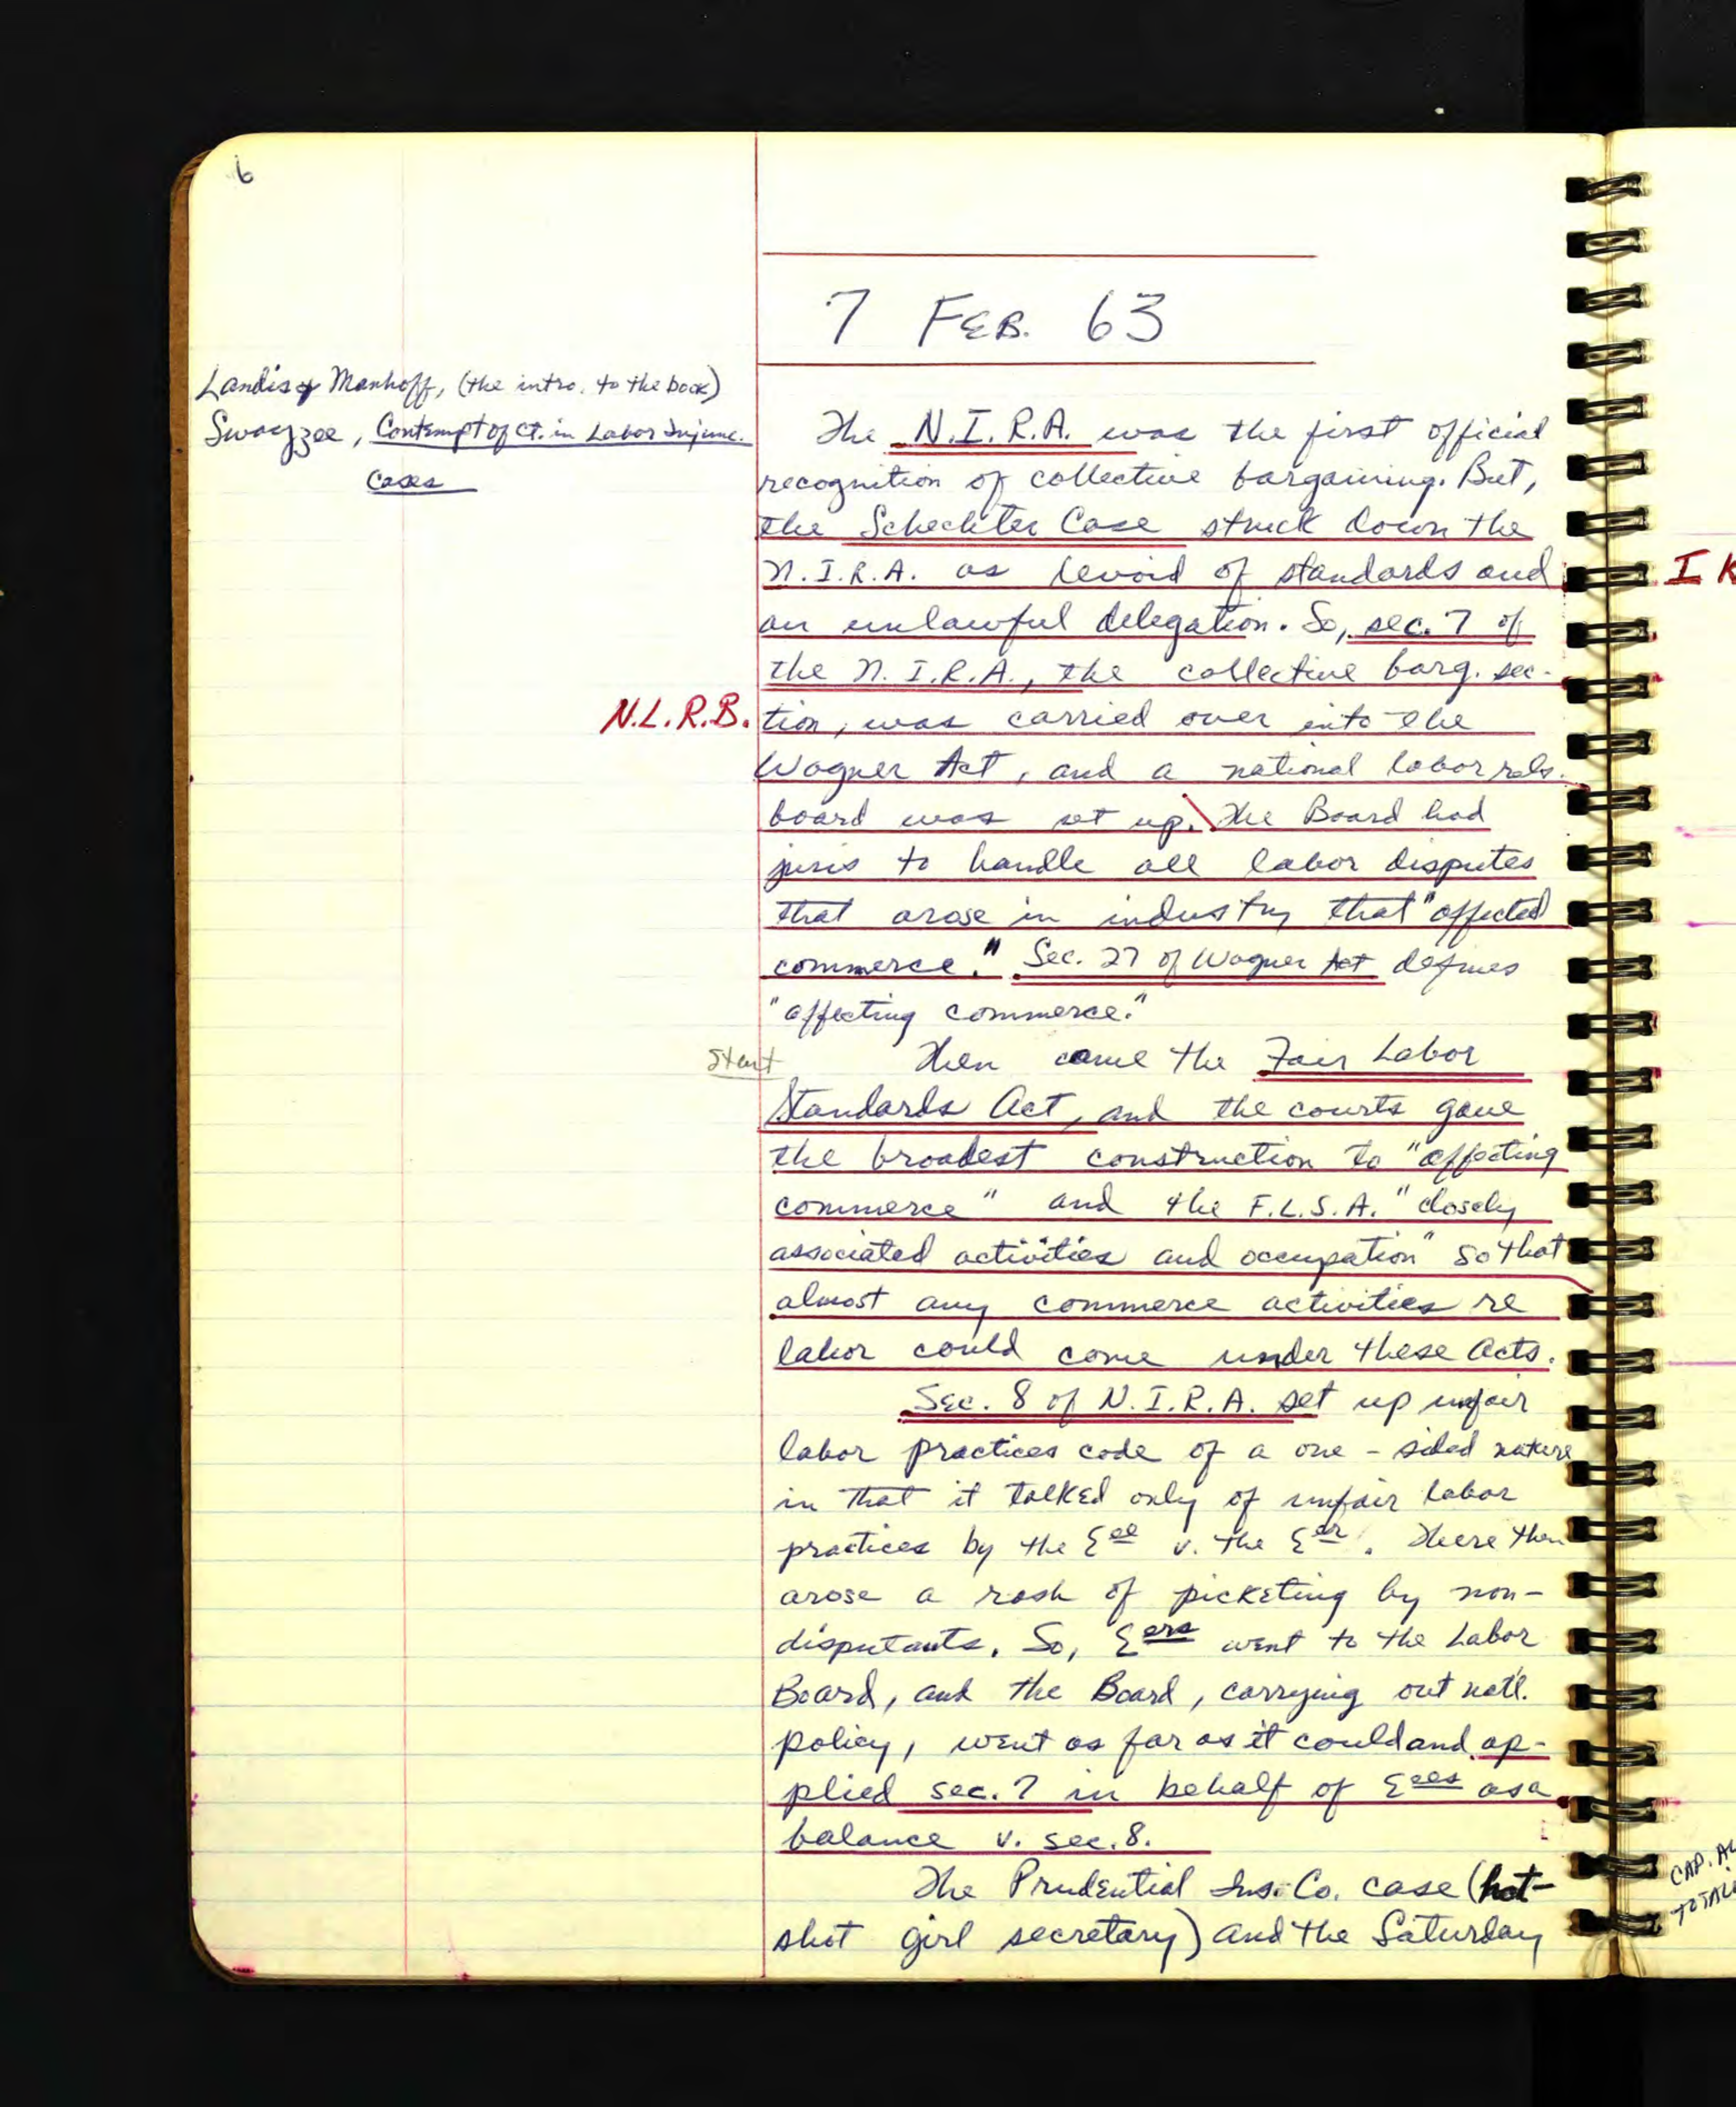 6
7 FEB. 63
Landis & Manhoff, (the intro. to the book)
Swayzee, Contempt of Ct. in Labor Injunc.
Cases
The N.I.R.A. was the first official
recognition of collective bargaining. But,
the Schechter Case struck down the
N.I.R.A. as devoid of standards and
an unlawful delegation. So, sec. 7 of
the N.I.R.A., the collective barg. sec-
N.L.R.B.
tion, was carried over into the
Wagner Act, and a national labor rels.
board was set up. The Board had
juris to handle all labor disputes
that arose in industry that "affected
commerce." Sec. 27 of Wagner Act defines
"affecting commerce."
Start
Then came the Fair Labor
Standards Act, and the courts gave
the broadest construction to "affecting
commerce" and the F.L.S.A. "closely
associated activities and occupation" so that
almost any commerce activities re
labor could come under these Acts.
Sec. 8 of N.I.R.A. set up unfair
labor practices code of a one-sided nature
in that it talked only of unfair labor
practices by the Eee v. the Eer. There then
arose a rash of picketing by non-
disputants. So, Eers went to the Labor
Board, and the Board, carrying out nat'l.
policy, went as far as it could and ap-
plied sec. 7 in behalf of Eees as a
balance v. sec. 8.
The Prudential Ins. Co. case (hot-
shot girl secretary) and the Saturday
I K
CAP. AL